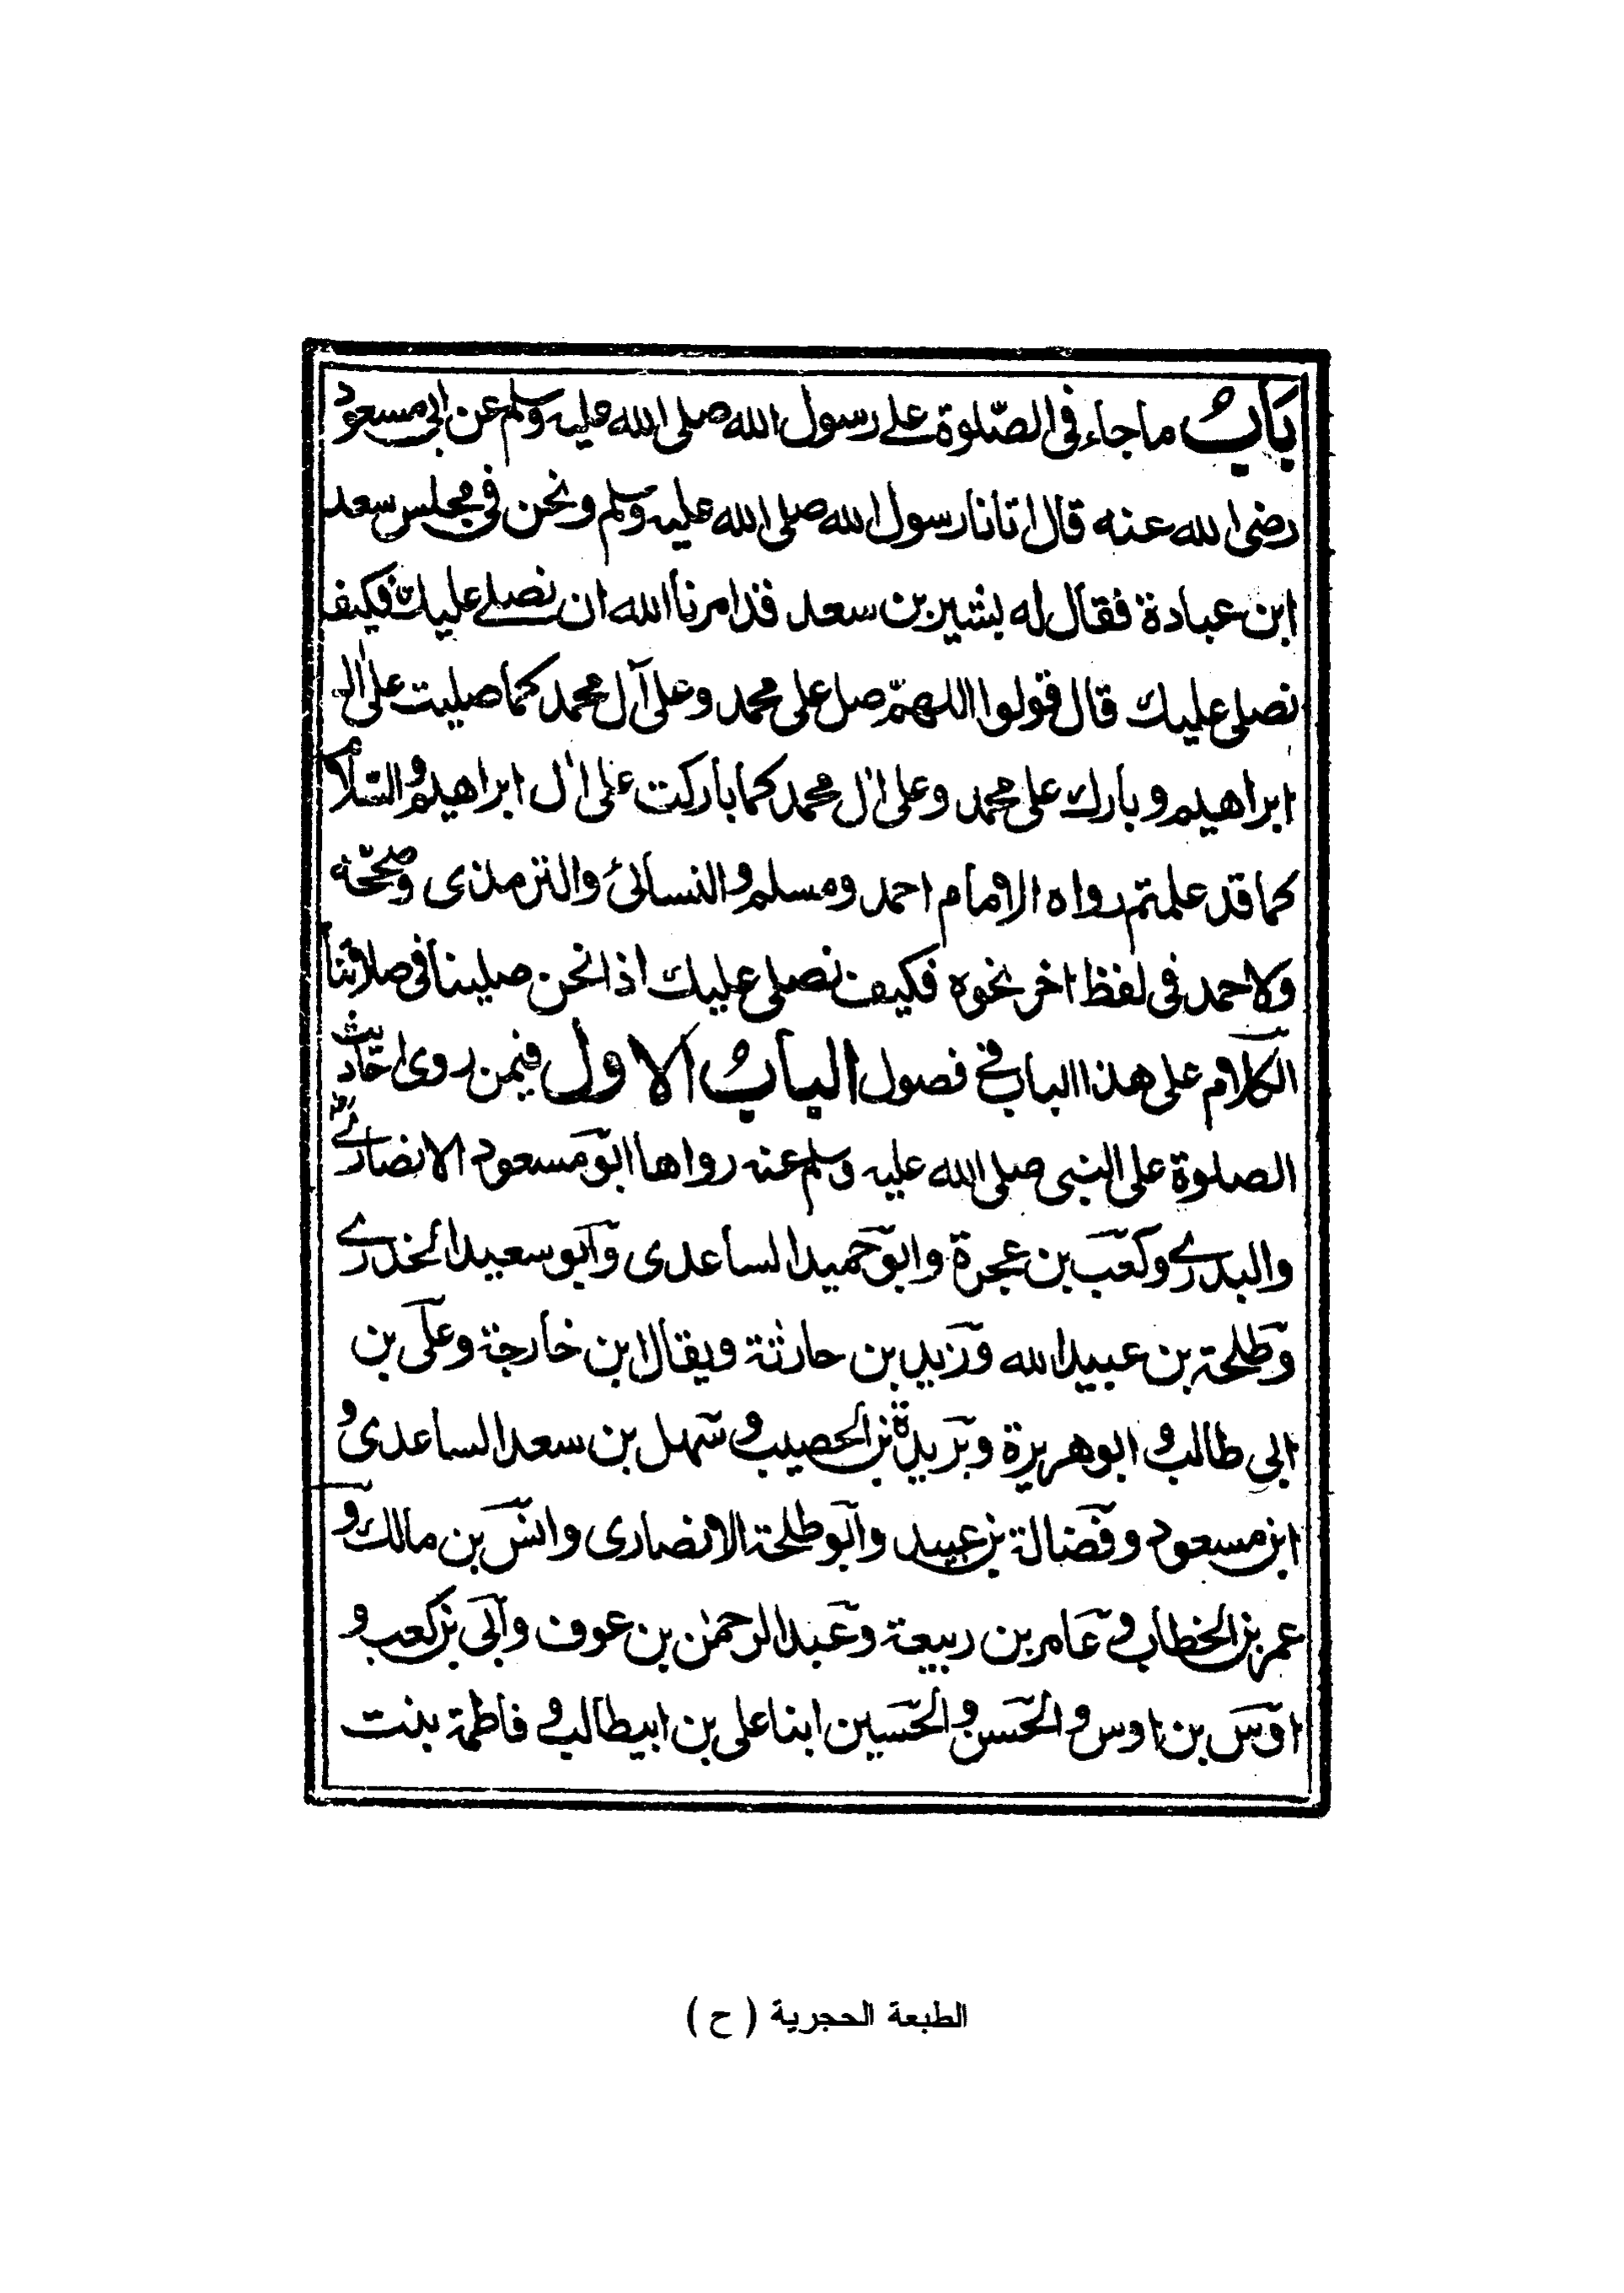 بَابُ ما جاء في الصّلوة على رسول الله صلى الله عليه وسلم عن ابى مسعود
رضى الله عنه قال اتانا رسول الله صلى الله عليه وسلم ونحن في مجلس سعد
ابن عبادة فقال له بشير بن سعد قد امرنا الله ان نصلے عليك فكيف
نصلى عليك قال قولوا اللهمّ صل على محمد وعلى آل محمد كما صليت على ال
ابراهيم وبارك على محمد وعلى ال محمد كما باركت على ال ابراهيم والسّلام
كما قد علمتم رواه الامام احمد ومسلم والنسائى والترمذى وصحّحه
ولاحمد فى لفظ اخر نحوه فكيف نصلى عليك اذا نحن صلينا فى صلاتنا
الكلام على هذا الباب فے فصول الباب الاول فيمن روى احاديث
الصلوة على النبى صلى الله عليه وسلم عنه رواها ابو مسعود الانصارے
والبدرے وكعب بن عجرة وابو حميد الساعدى وابو سعيد الخدرے
وطلحة بن عبيد الله وزيد بن حارثة ويقال ابن خارجة وعلى بن
ابى طالب و ابو هريرة وبريدة بن الحصيب و سهل بن سعد الساعدى و
ابن مسعود وفضالة بن عبيد وابو طلحة الانصارى وانس بن مالك و
عمر بن الخطاب و عامر بن ربيعة وعبد الرحمٰن بن عوف وابى بن كعب و
اوس بن اوس و الحسن و الحسين ابنا على بن ابيطالب و فاطمة بنت
الطبعة الحجرية ( ح )